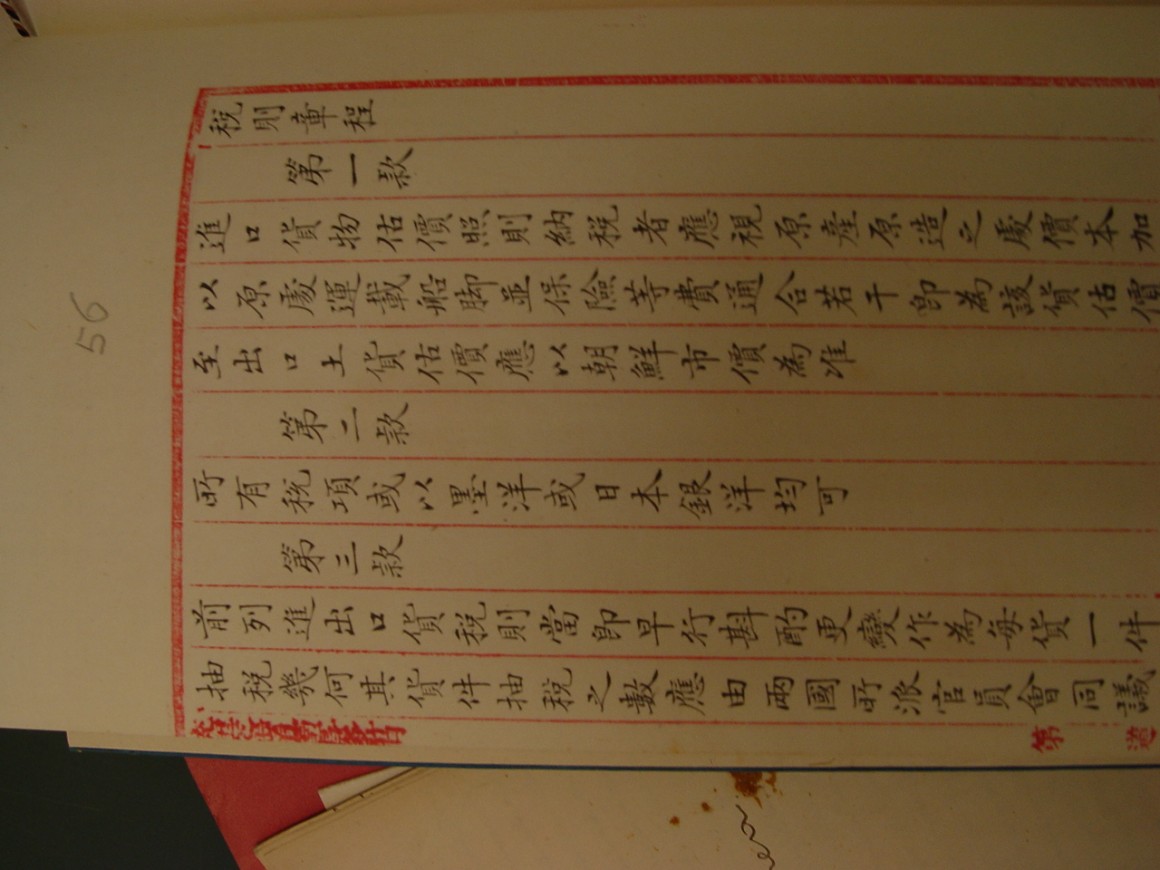 稅則章程
第一款
進口貨物估價照則納稅者應視原產原造之處價本加
以原處運載船脚並保險等費通合若干卽為該貨估價
至出口土貨估價應以朝鮮市價為准
第二款
所有稅項或以墨洋或日本銀洋均可
第三款
前列進出口貨稅則當卽早行斟酌更變作為每貨一件
抽稅幾何其貨件抽稅之數應由兩國所派官員會同議
第
56